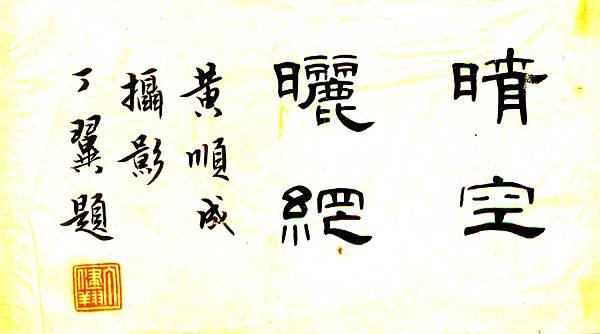 晴空
曬網
黃順成
攝影
丁翼題